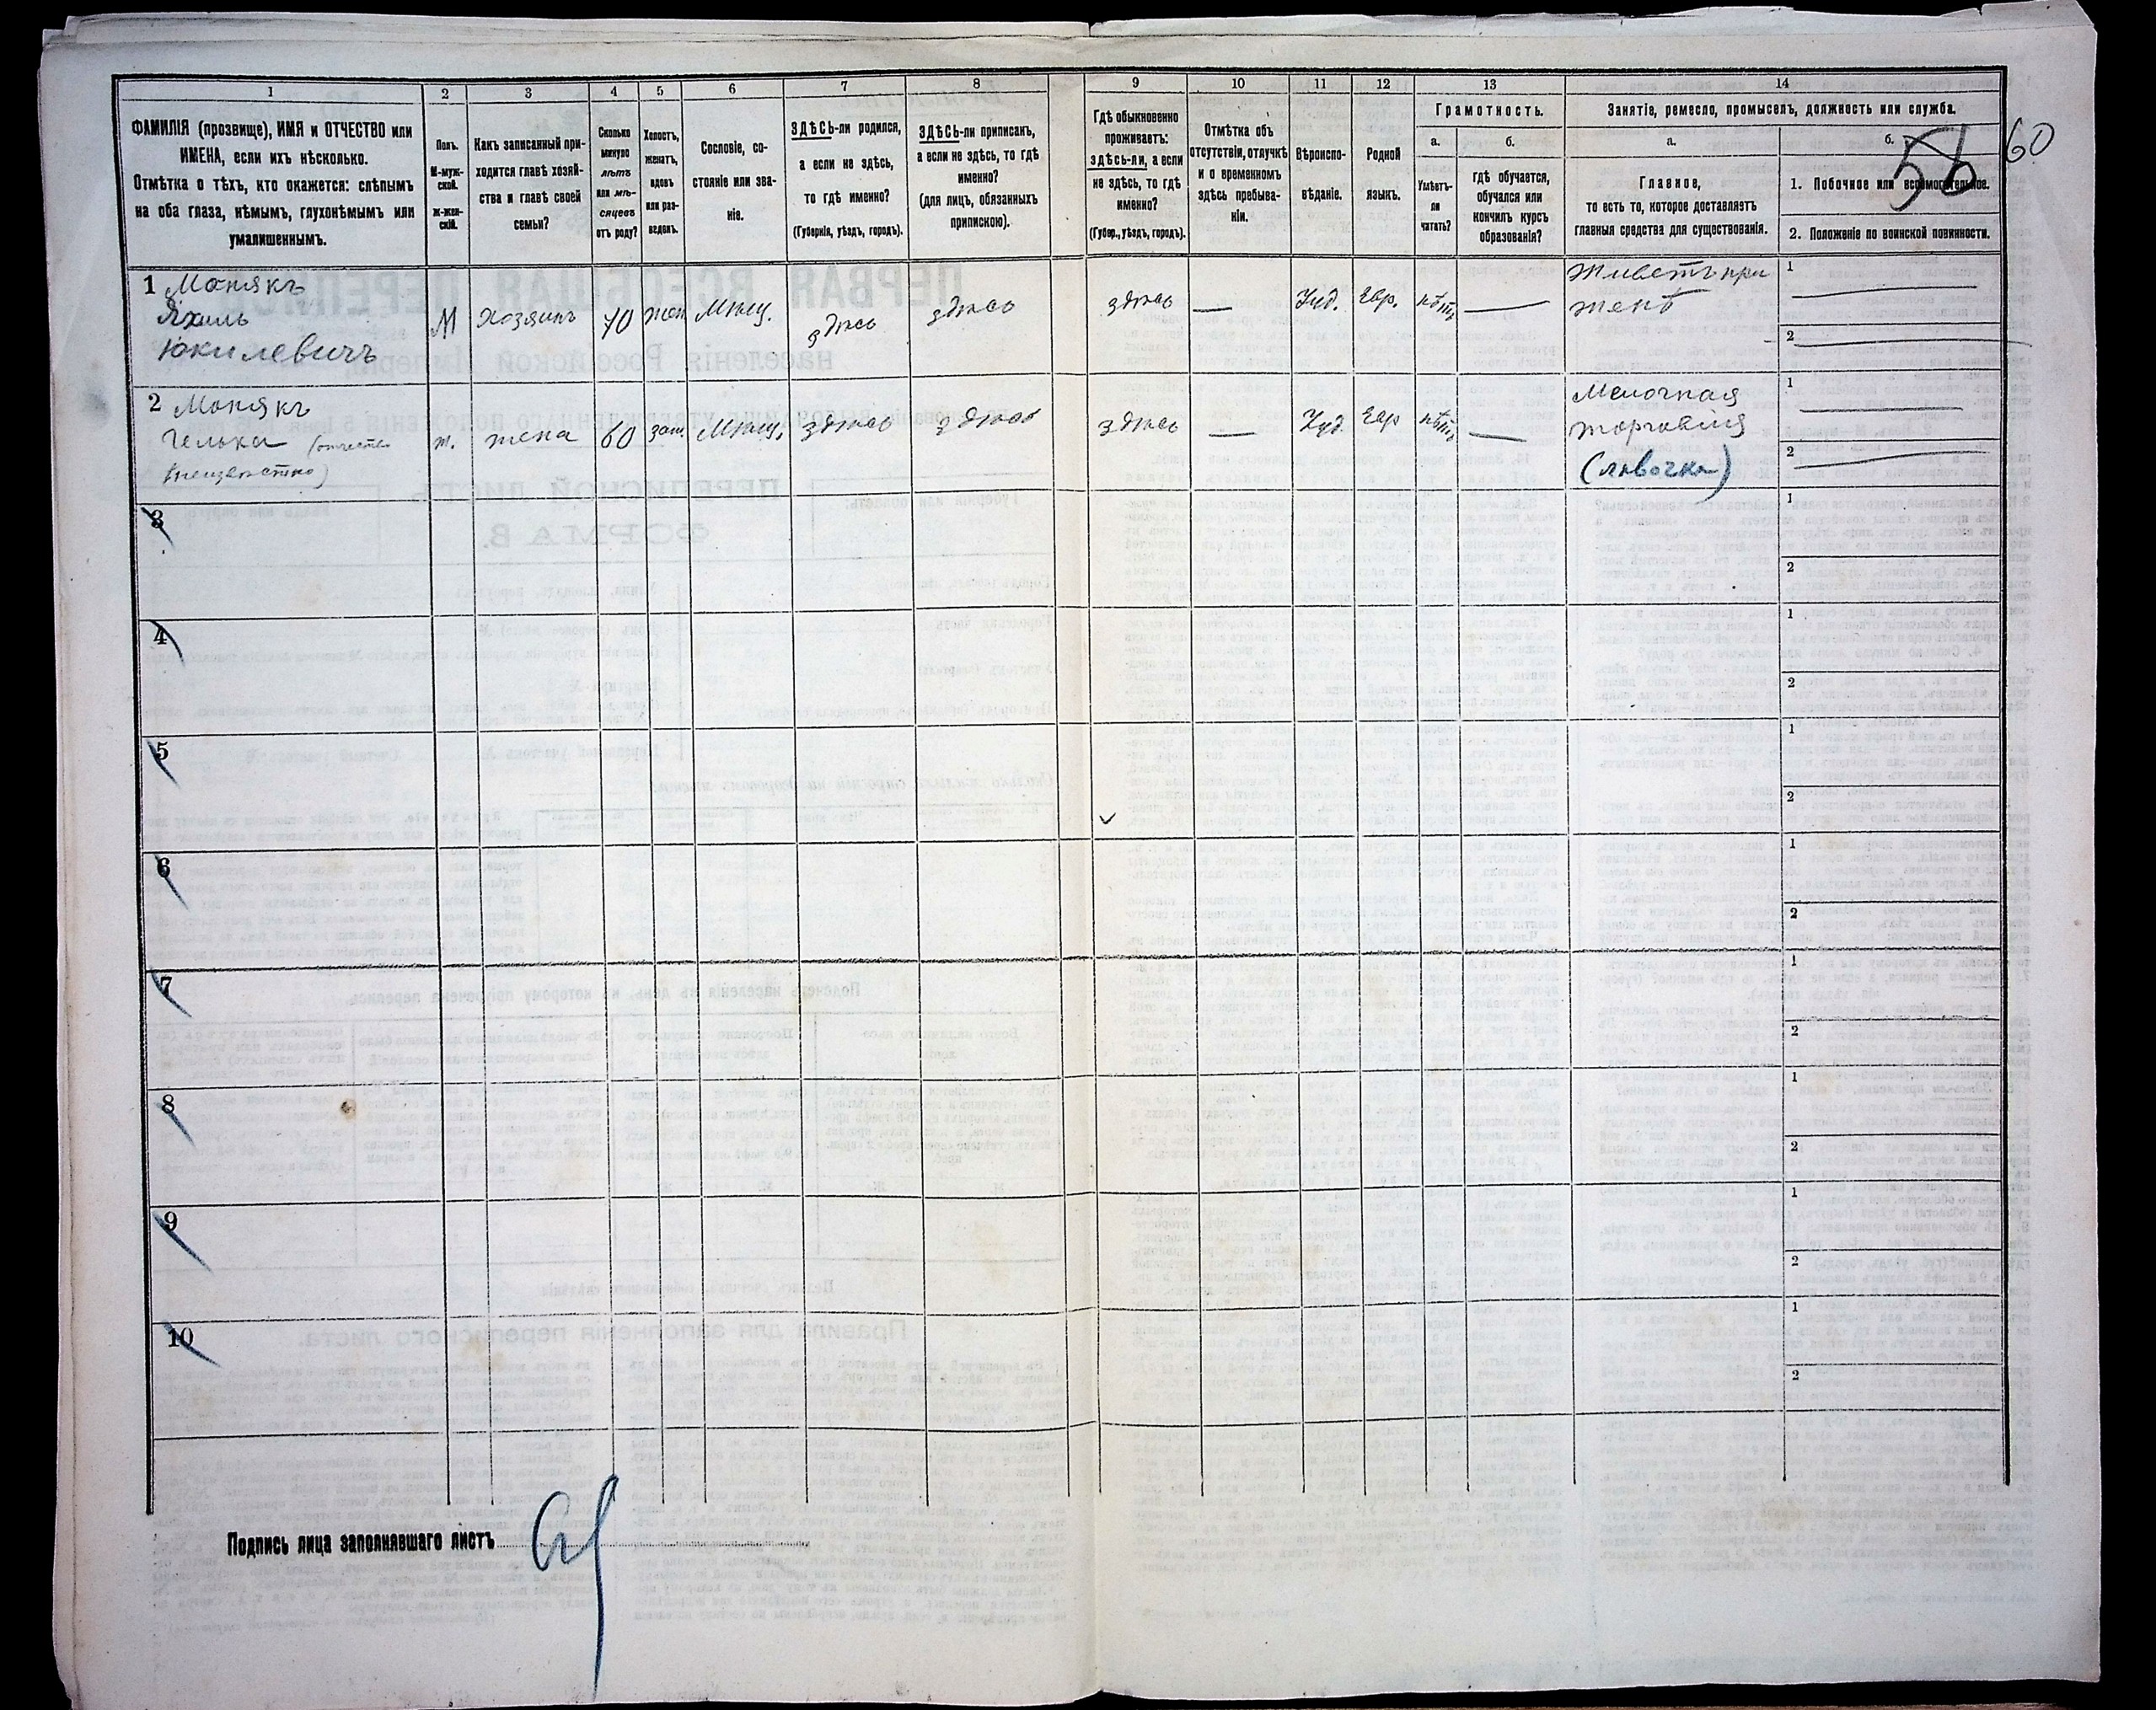 1
2
3
4
5
6
7
8
9
10
11
12
13
14
ФАМИЛІЯ (прозвище), ИМЯ и ОТЧЕСТВО или
ИМЕНА, если ихъ нѣсколько.
Отмѣтка о тѣхъ, кто окажется: слѣпымъ
на оба глаза, нѣмымъ, глухонѣмымъ или
умалишеннымъ.
Полъ.
М-муж-
ской.
Ж-жен-
скій.
Какъ записанный при-
ходится главѣ хозяй-
ства и главѣ своей
семьи?
Сколько
минуло
лѣтъ
или мѣ-
сяцевъ
отъ роду?
Холостъ,
женатъ,
вдовъ
или раз-
веденъ.
Сословіе, со-
стояніе или зва-
ніе.
ЗДѢСЬ-ли родился,
а если не здѣсь,
то гдѣ именно?
(Губернія, уѣздъ, городъ).
ЗДѢСЬ-ли приписанъ,
а если не здѣсь, то гдѣ
именно?
(для лицъ, обязанныхъ
припискою).
Гдѣ обыкновенно
проживаетъ:
здѣсь-ли, а если
не здѣсь, то гдѣ
именно?
(Губер., уѣздъ, городъ).
Отмѣтка объ
отсутствіи, отлучкѣ
и о временномъ
здѣсь пребыва-
ніи.
Вѣроиспо-
вѣданіе.
Родной
языкъ.
Грамотность.
а.
Умѣетъ-
ли
читать?
б.
гдѣ обучается,
обучался или
кончилъ курсъ
образованія?
Занятіе, ремесло, промыселъ, должность или служба.
а.
Главное,
то есть то, которое доставляетъ
главныя средства для существованія.
б.
1. Побочное или вспомогательное.
2. Положеніе по воинской повинности.
58
60
1 Монякъ
Яхиль
Юкилевичъ
М
Хозяинъ
70
жен
Мѣщ.
здѣсь
здѣсь
здѣсь
—
Іуд.
Евр.
нѣтъ
—
Живетъ при
женѣ
1
2
2 Монякъ
Гелька (отчество
неизвѣстно)
ж.
жена
60
зам.
Мѣщ.
здѣсь
здѣсь
здѣсь
—
Іуд.
Евр
нѣтъ
—
Мелочная
торговля
(лавочка)
1
2
3
1
2
4
1
2
5
1
2
6
1
2
7
1
2
8
1
2
9
1
2
10
1
2
Подпись лица заполнявшаго листъ